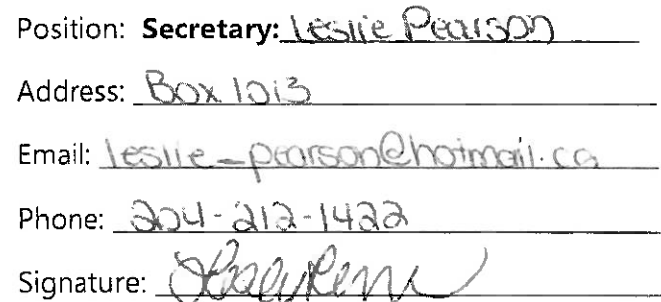 Position: Secretary: Leslie Pearson
Address: Box 1013
Email: leslie_pearson@hotmail.ca
Phone: 204-212-1422
Signature: